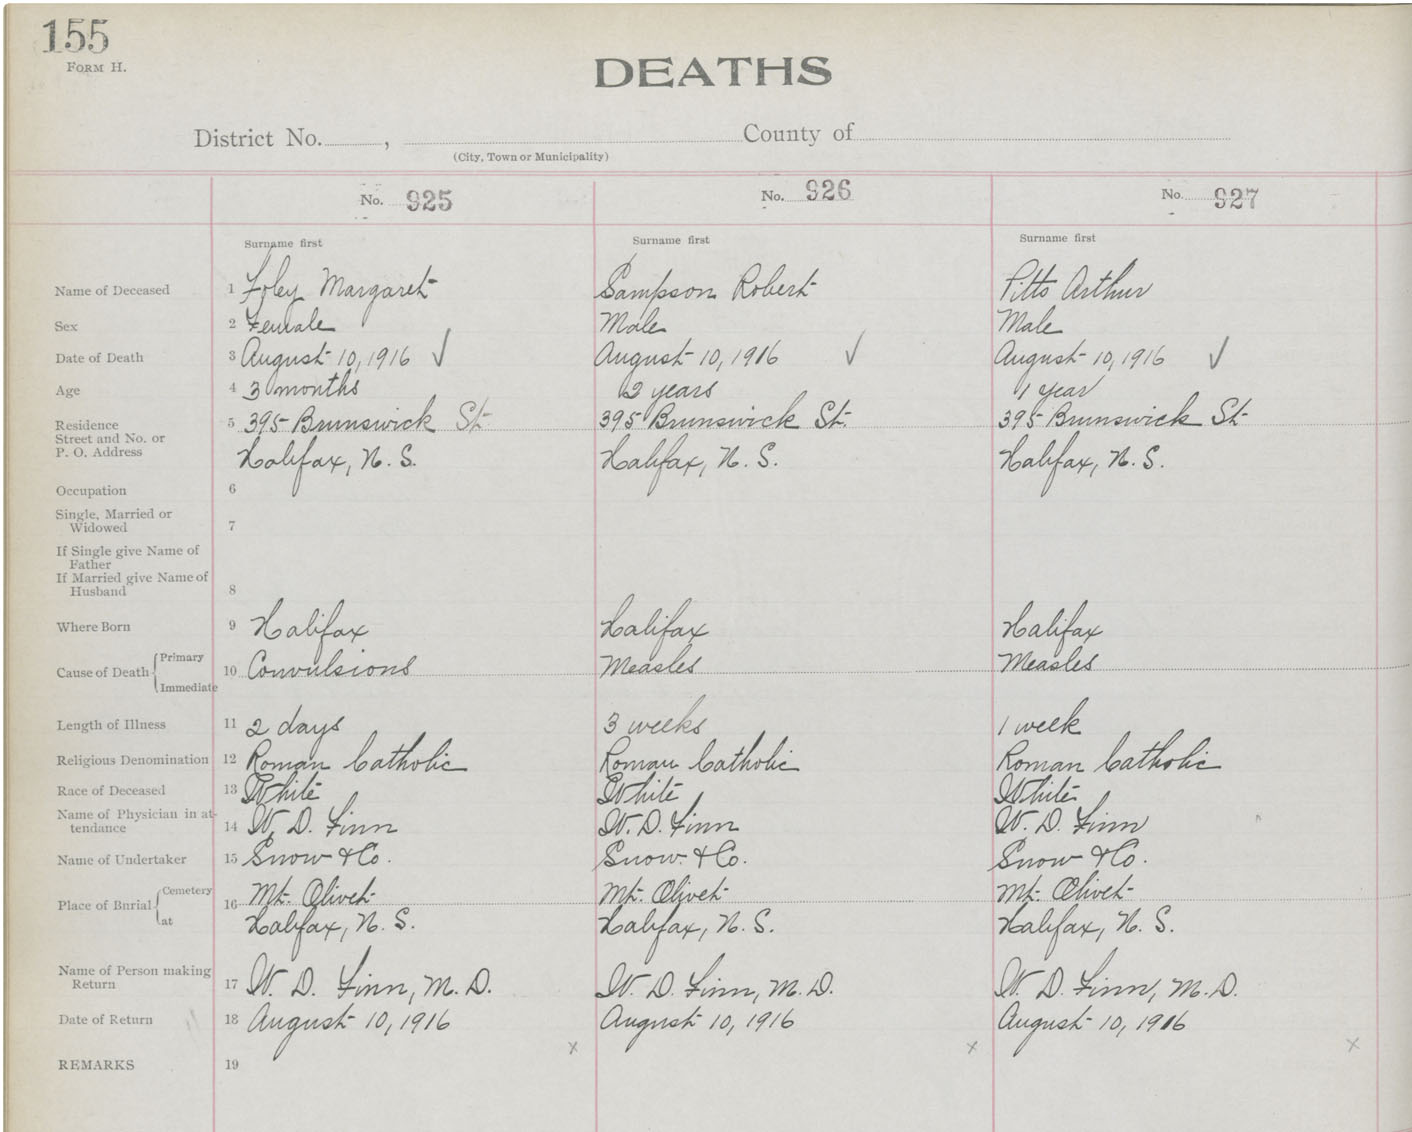 155
FORM H.
DEATHS
District No. , County of
(City, Town or Municipality)
No. 925 No. 926 No. 927
Surname first Surname first Surname first
Name of Deceased 1 Foley Margaret Sampson Robert Pitts Arthur
Sex 2 Female Male Male
Date of Death 3 August 10, 1916 ✓ August 10, 1916 ✓ August 10, 1916 ✓
Age 4 3 months 2 years 1 year
Residence 5 395 Brunswick St. 395 Brunswick St. 395 Brunswick St
Street and No. or
P. O. Address Halifax, N. S. Halifax, N. S. Halifax, N. S.
Occupation 6
Single, Married or
Widowed 7
If Single give Name of
Father
If Married give Name of
Husband 8
Where Born 9 Halifax Halifax Halifax
Primary
Cause of Death 10 Convulsions Measles Measles
Immediate
Length of Illness 11 2 days 3 weeks 1 week
Religious Denomination 12 Roman Catholic Roman Catholic Roman Catholic
Race of Deceased 13 White White White
Name of Physician in at-
tendance 14 W. D. Finn W. D. Finn W. D. Finn
Name of Undertaker 15 Snow & Co. Snow & Co. Snow & Co.
Cemetery Mt. Olivet Mt. Olivet Mt. Olivet
Place of Burial 16
at Halifax, N. S. Halifax, N. S. Halifax, N. S.
Name of Person making
Return 17 W. D. Finn, M. D. W. D. Finn, M. D. W. D. Finn, M. D.
Date of Return 18 August 10, 1916 August 10, 1916 August 10, 1916
x x x
REMARKS 19